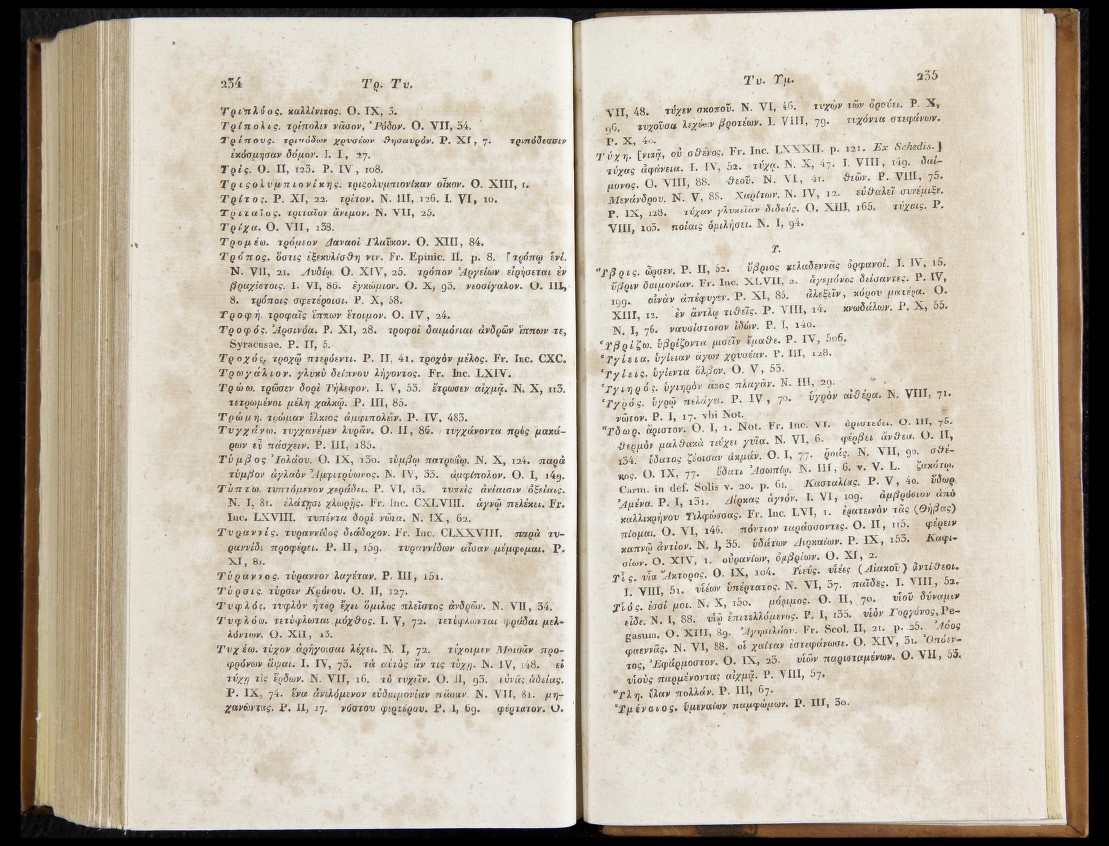 234 Τρ. Τυ.
Τριπλόος. καλλίνικος. O. IX, 3.
Τρίπολις. τρίπολιν νᾶσον, Ῥόδον. O. VII, 34.
Τρίπους. τριπόδων χρυσέων θησαυρόν. P. XI, 7. τριπόδεσσιν
ἐκόσμησαν δόμον. I. I, 27.
Τρίς. O. II, 123. P. IV, 108.
Τριςολυμπιονίκης. τριςολυμπιονίκαν οἶκον. O. XIII, 1.
Τρίτος. P. XI, 22. τρίτον. N. III, 126. I. VI, 10.
Τριταῖος. τριταῖον ἄνεμον. N. VII, 25.
Τρίχα. O. VII, 138.
Τρομέω. τρόμεον Δαναοὶ Γλαῦκον. O. XIII, 84.
Τρόπος. ὅστις ἐξεκυλίσθη νιν. Fr. Epinic. II. p. 8. [τρόπῳ ἑνί.
N. VII, 21. Λυδίῳ. O. XIV, 25. τρόπον Ἀργείων εἰρήσεται ἐν
βραχίστοις. I. VI, 86. ἐγκώμιον. O. X, 93. νεοσίγαλον. O. III,
8. τρόποις σφετέροισι. P. X, 58.
Τροφή. τροφαῖς ἵππων ἕτοιμον. O. IV, 24.
Τροφός. Ἀρσινόα. P. XI, 28. τροφοὶ δαιμόνιαι ἀνδρῶν ἵππων τε,
Syracusae. P. II, 5.
Τροχός. τροχῷ πτερόεντι. P. II, 41. τροχὸν μέλος. Fr. Inc. CXC.
Τρωγάλιον. γλυκὺ δείπνου λήγοντος. Fr. Inc. LXIV.
Τρώω. τρῶσεν δορὶ Τήλεφον. I. V, 53. ἔτρωσεν αἰχμᾷ. N. X, 113.
τετρωμένοι μέλη χαλκῷ. P. III, 85.
Τρώμη. τρώμαν ἕλκεος ἀμφιπολεῖν. P. IV. 483.
Τυγχάνω. τυγχανέμεν λυρᾶν. O. II, 86. τυγχάνοντα πρὸς μακά-
ρων εὖ πάσχειν. P. III, 185.
Τύμβος Ἰολάου. O. IX, 130. τύμβῳ πατρωΐῳ. N. X, 124. παρὰ
τύμβον ἀγλαὸν Ἀμφιτρύωνος. N. IV, 33. ἀμφίπολον. O. I, 149.
Τύπτω. τυπτόμενον χεράδει. P. VI, 13. τυπεὶς ἀνίαισιν ὀξείαις.
N. I, 81. ἐλάτῃσι χλωρῇς. Fr. Inc. CXLVIII. ἁγνῷ πελέκει. Fr.
Inc. LXVIII. τυπέντα δορὶ νῶτα. N. IX, 62.
Τυραννίς. τυραννίδος διάδοχον. Fr. Inc. CLXXVIII. παρὰ τυ-
ραννίδι προφέρει. P. II, 159. τυραννίδων αἶσαν μέμφομαι. P.
XI, 81.
Τύραννος. τύραννον λαγέταν. P. III, 151.
Τύρσις. τύρσιν Κρόνου. O. II, 127.
Τυφλός. τυφλὸν ἦτορ ἔχει ὅμιλος πλεῖστος ἀνδρῶν. N. VII, 34.
Τυφλόω. τετύφλωται μόχθος. I. V, 72. τετύφλωνται φράδαι μελ-
λόντων. O. XII, 13.
Τυχέω. τύχον ἀρήγοισαι λέχει. N. I, 72. τύχοιμεν Μοισᾶν προ-
φρόνων ἅψαι. I. IV, 73. τὰ αὐτὸς ἄν τις τύχῃ. N. IV, 148. εἰ
τύχῃ τὶς ἔρδων. N. VII, 16. τὸ τυχεῖν. O. II, 93. εὐνᾶς ἁδείας.
P. IX, 74. ἕνα ἀνελόμενον εὐδαιμονίαν πᾶσαν. N. VII, 81. μη-
χανῶντας. P. II, 17. νόστου φερτέρου. P. I, 69. φέρτατον. O.
Τυ. Υμ. 235
VII, 48. τύχεν σκοποῦ. N. VI, 46. τυχὼν τῶν ὀρούει. P. X,
96. τυχοῦσα λεχέων βροτέων. I. VIII, 79. τυχόντα στεφάνων.
P. X, 40.
Τύχη. [νικᾷ, οὐ σθένος. Fr. Inc. LXXXII. p. 121. Ex Schedis.]
τύχας ἀφάνεια. I. IV, 52. τύχᾳ. N. X, 47. I. VIII, 149. δαί-
μονος. O. VIII, 88. θεοῦ. N. VI, 41. θεῶν. P. VIII, 75.
Μενάνδρου. N. V, 88. Χαρίτων. N. IV, 12. εὐθαλεῖ συνέμιξε.
P. IX, 128. τύχαν γλυκεῖαν διδούς. O. XIII, 165. τύχαις. P.
VIII, 103. ποίαις ὁμιλήσει. N. I, 94.
Υ.
Ὕβρις. ὦρσεν. P. II, 52. ὕβριος κελαδεννᾶς ὀρφανοί. I. IV, 15.
ὕβριν δαιμονίαν. Fr. Inc. XLVII, 2. ἁγεμόνος δείσαντες. P. IV,
199. αἰνὰν ἀπέφυγεν. P. XI, 85. ἀλεξεῖν, κόρου ματέρα. O.
XIII, 12. ἐν ἄντλῳ τιθεῖς. P. VIII, 14. κνωδάλων. P. X, 55.
N. I, 76. ναυσίστονον ἰδών. P. I, 140.
Ὑβρίζω. ὑβρίζοντα μισεῖν ἔμαθε. P. IV, 506.
Ὑγίεια. ὑγίειαν ἄγων χρυσέαν. P. III, 128.
Ὑγίεις. ὑγίεντα ὄλβον. O. V, 53.
Ὑγιηρός. ὑγιηρὸν ἄκος πλαγᾶν. N. III, 29.
Ὑγρός. ὑγρῷ πελάγει. P. IV, 70. ὑγρὸν αἰθέρα. N. VIII, 71.
νῶτον. P. I, 17. vbi Not.
Ὕδωρ. ἄριστον. O. I, 1. Not. Fr. Inc. VI. ἀριστεύει. O. III, 75.
θερμὸν μαλθακὰ τεύχει γυῖα. N. VI, 6. φέρβει ἄνθεα. O. II,
134. ὕδατος ζέοισαν ἀκμάν. O. I, 77. ῥοάς. N. VII, 90. σθέ-
νος. O. IX, 77. ὕδατι Ἀσωπίῳ. N. III, 6. v. V. L. ζακότῳ.
Carm. in def. Solis v. 20. p. 61. Κασταλίας. P. V, 40. ὕδωρ
Ἀμένα. P. I, 131. Δίρκας ἁγνόν. I. VI, 109. ἀμβρόσιον ἀπὸ
καλλικρήνου Τιλφώσσας. Fr. Inc. LVI, 1. ἐρατεινὸν τᾶς (Θήβας)
πίομαι. O. VI, 146. πόντιον ταράσσοντες. O. II, 115. φέρειν
καπνῷ ἀντίον. N. I, 35. ὑδάτων Διρκαίων. P. IX, 153. Καφι-
σίων. O. XIV, 1. οὐρανίων, ὀμβρίων. O. XI, 2.
Υἷς. υἷα Ἄκτορος. O. IX, 104. Υἱεύς. υἱέες (Αἰακοῦ) ἀντίθεοι.
I. VIII, 51. υἱέων ὑπέρτατος. N. VI, 37. παῖδες. I. VIII, 52.
Υἱός. ἐσσί μοι. N. X, 150. μόριμος. O. II, 70. υἱοῦ δύναμιν
εἶδε. N. I, 88. υἱῷ ἐπιτελλόμενος. P. I, 135. υἱὸν Γοργόνος, Pe-
gasum, O. XIII, 89. Ἁγησιλάου. Fr. Scol. II, 21. p. 25. Ἀόος
φαεννᾶς. N. VI, 88. οἱ χαίταν ἐστεφάνωσε. O. XIV, 31. Ὀπόεν-
τος, Ἐφάρμοστον. O. IX, 23. υἱῶν παρισταμένων. O. VII, 53.
υἱοὺς παρμένοντας αἰχμᾷ. P. VIII, 57.
Ὕλη. ὕλαν πολλάν. P. III, 67.
Ὑμέναιος. ὑμεναίων παμφώμων. P. III, 30.